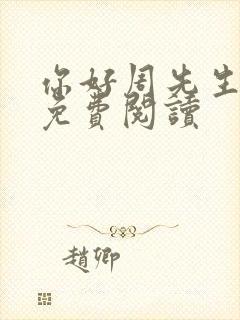 你好周先生
免費閱讀
趙卿